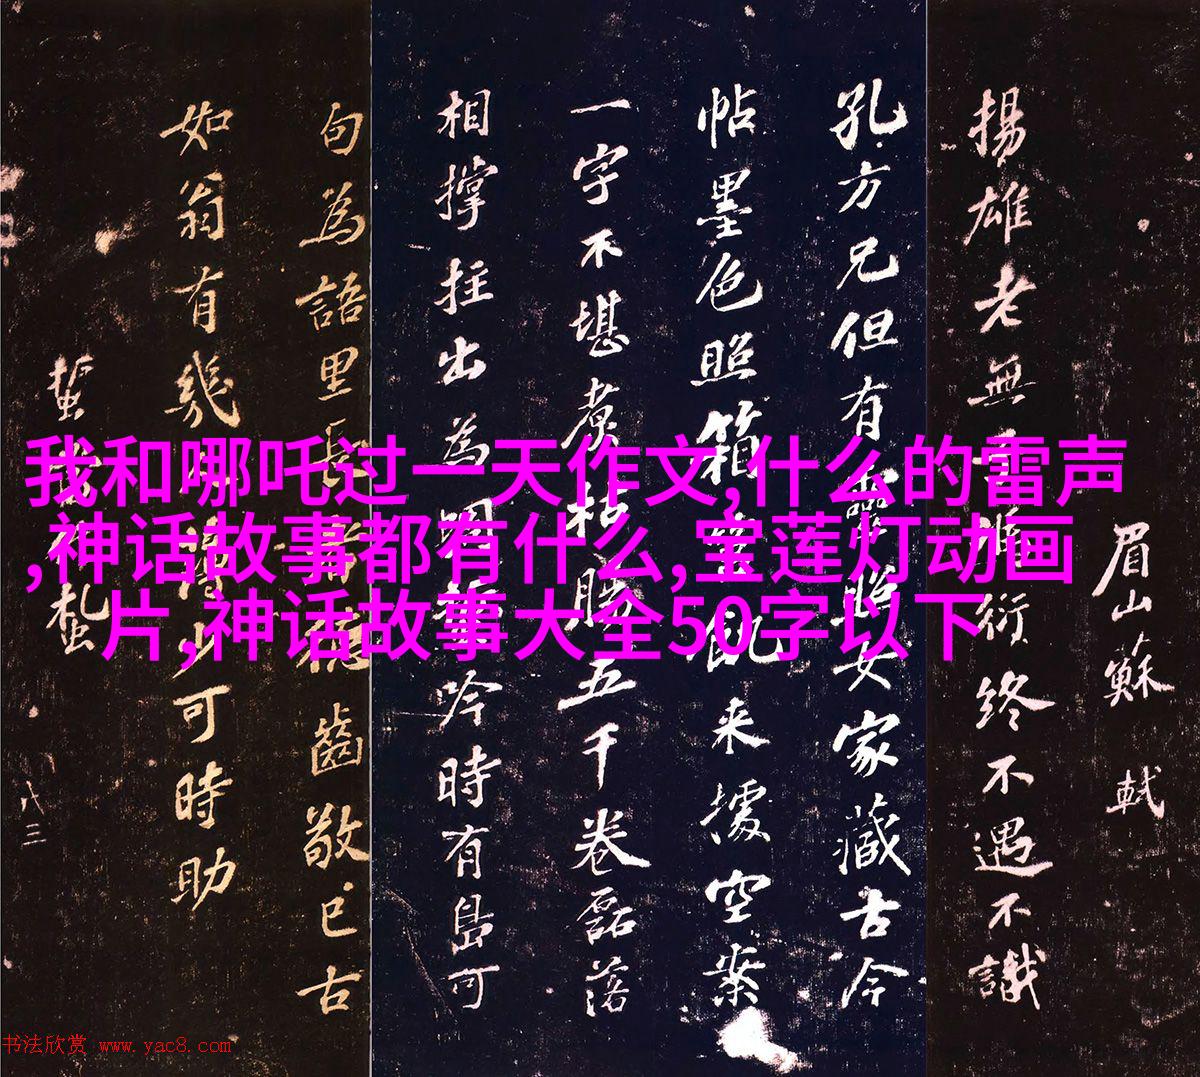 我和哪吒过一天作文,什么的雷声
,神话故事都有什么,宝莲灯动画
片,神话故事大全50字以下
眉山蘇軾
揚雄老無 衍終不遇不識
孔方兄但有靈照女家藏古今
帖墨色照箱 飢来據空案
一字不堪煮枯腸五千卷磊落
相撑拄出為 吟時有島可
句為語里長 齒敬已古
如翁有幾 少可時助
八三
书法欣赏 www.yac8.com